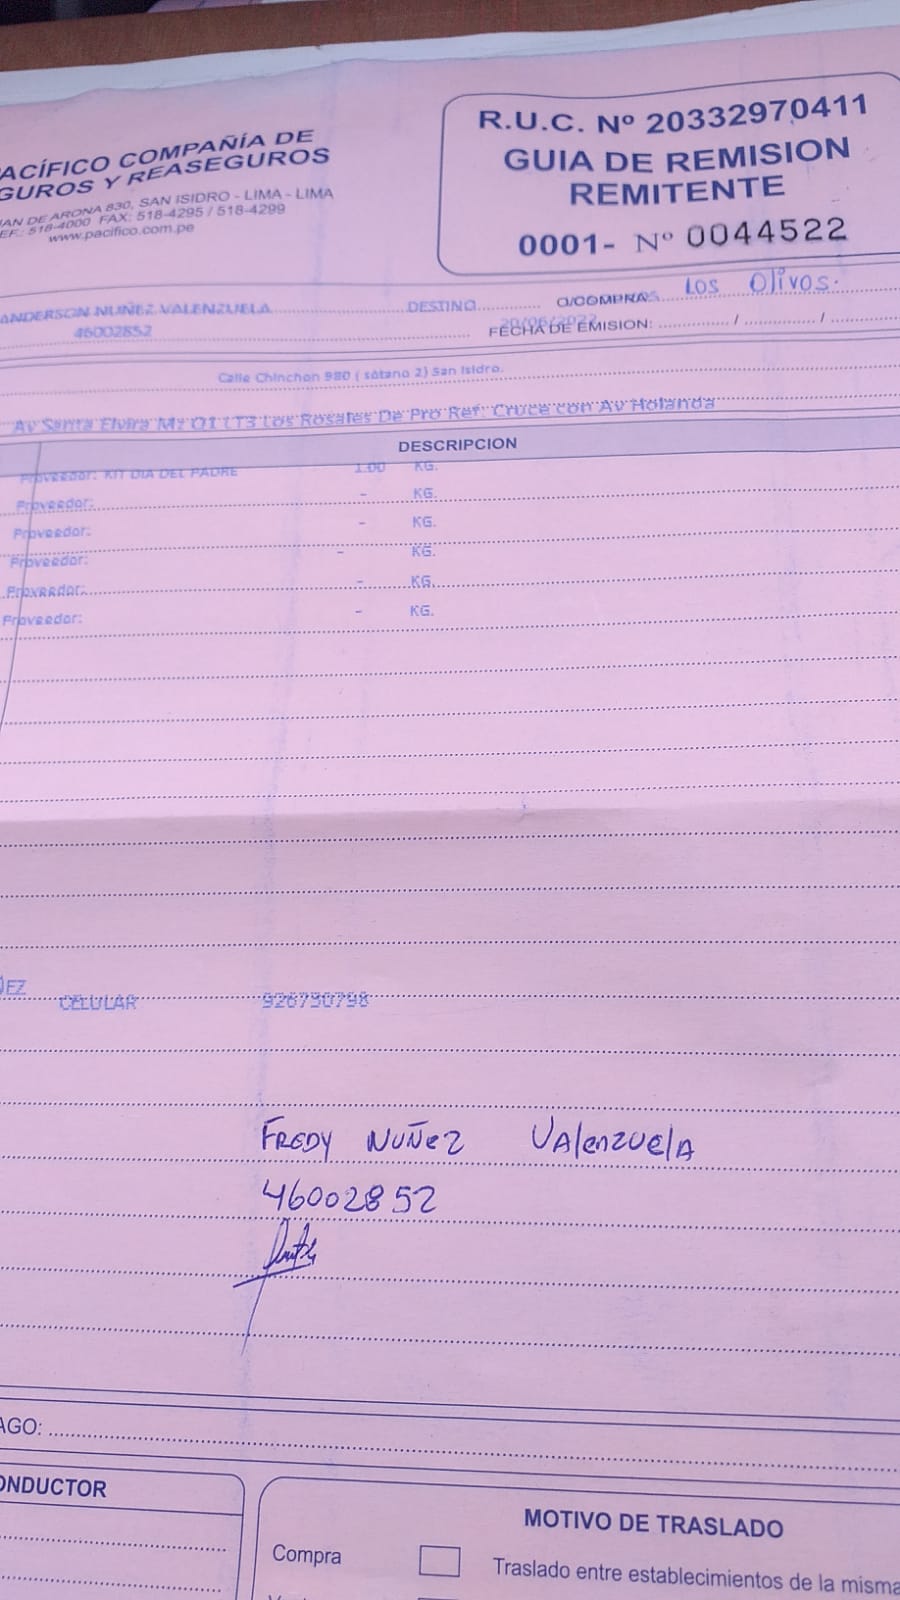 ACÍFICO COMPAÑÍA DE
GUROS Y REASEGUROS
AN DE ARONA 830, SAN ISIDRO - LIMA - LIMA
EF.: 518-4000 FAX: 518-4295 / 518-4299
www.pacifico.com.pe
R.U.C. Nº 20332970411
GUIA DE REMISION
REMITENTE
0001- Nº 0044522
ANDERSON NUÑEZ VALENZUELA DESTINO O/COMPRA Los Olivos.
46002852 FECHA DE EMISION: / /
20/06/2022
Calle Chinchon 980 ( sótano 2) San Isidro.
Av Santa Elvira Mz O1 LT3 Los Rosales De Pro Ref: Cruce con Av Holanda
DESCRIPCION
Proveedor: KIT DIA DEL PADRE 1.00 KG.
Proveedor: - KG.
Proveedor: - KG.
Proveedor: - KG.
Proveedor: - KG.
Proveedor: - KG.
ÑEZ
CELULAR 926730798
FREDY NUÑEZ VALENZUELA
46002852
AGO:
ONDUCTOR
MOTIVO DE TRASLADO
Compra
Traslado entre establecimientos de la misma